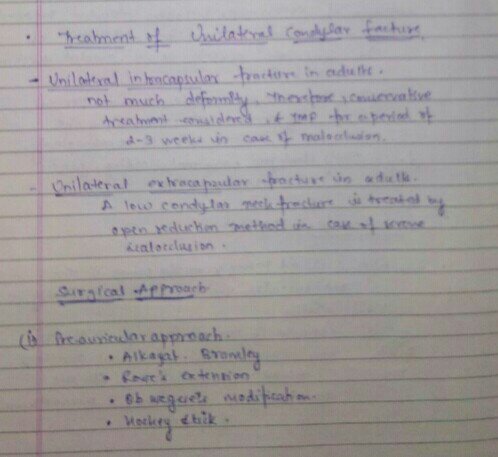 • Treatment of Unilateral Condylar fracture.
- Unilateral intracapsular fracture in adults.
not much deformity, therefore, conservative
treatment considered, & IMF for a period of
2-3 weeks in case of malocclusion.
- Unilateral extracapsular fracture in adults.
A low condylar neck fracture is treated by
open reduction method in case of
malocclusion.
Surgical Approach
(i) Preauricular approach.
• Alkayat. Bramley
• Rowe's extension
• modification.
• Hockey stick.